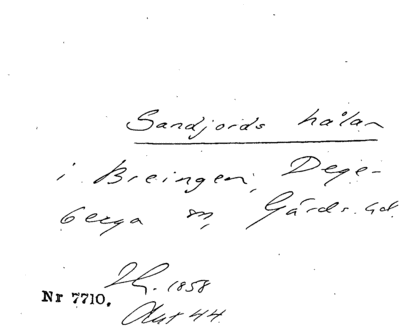 Sandjords hålan
i Breingen, Dege-
berga sn, Gärds hd.
Nr 7710.
1858
Aut 44